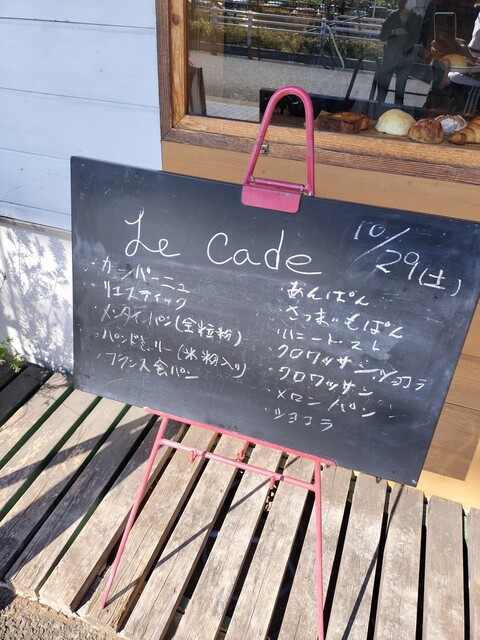 Le Cade
10/29(土)
・カンパーニュ
・リュスティック
・パン(全粒粉)
・パンドミー(米粉入り)
・フランス食パン
・あんぱん
・さつまいもぱん
・ハニートースト
・クロワッサンショコラ
・クロワッサン
・メロンパン
・ショコラ